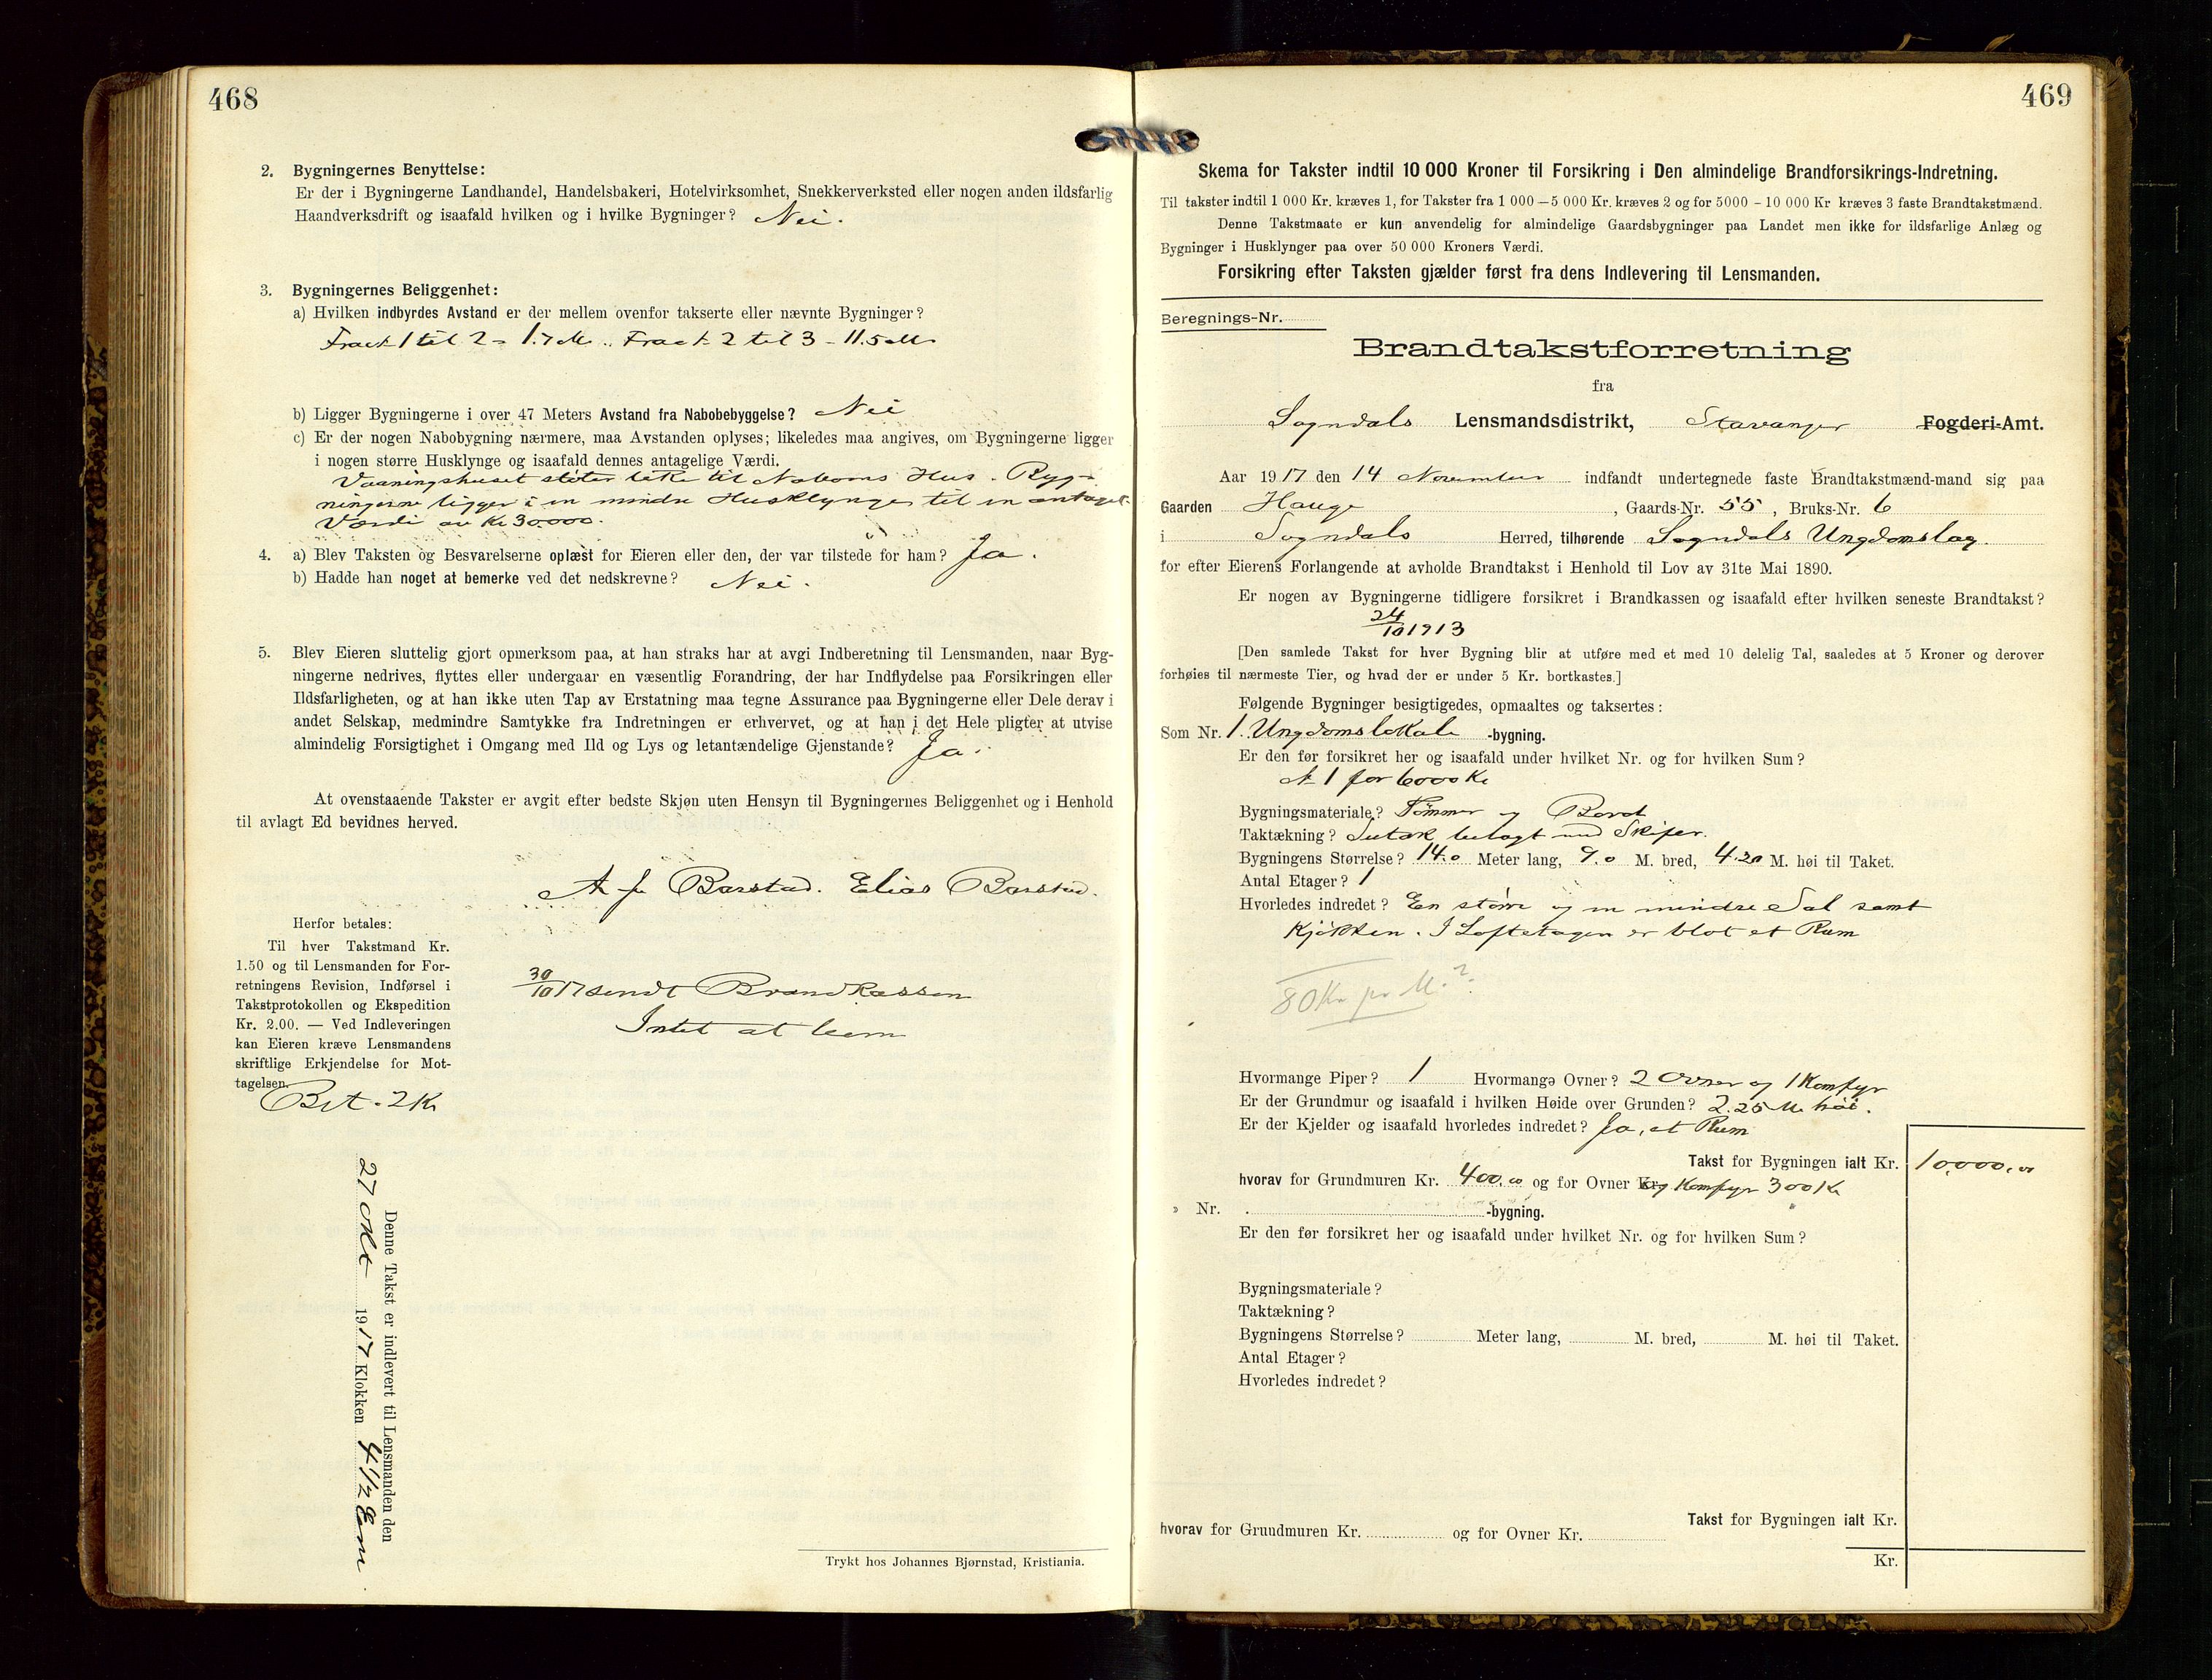 468
2. Bygningernes Benyttelse:
Er der i Bygningerne Landhandel, Handelsbakeri, Hotelvirksomhet, Snekkerverksted eller nogen anden ildsfarlig
Haandverksdrift og isaafald hvilken og i hvilke Bygninger? Nei.
3. Bygningernes Beliggenhet:
a) Hvilken indbyrdes Avstand er der mellem ovenfor takserte eller nævnte Bygninger?
1 til 2 = 1.7 M. 2 til 3 - 11.5 M
b) Ligger Bygningerne i over 47 Meters Avstand fra Nabobebyggelse? Nei
c) Er der nogen Nabobygning nærmere, maa Avstanden oplyses; likeledes maa angives, om Bygningerne ligger
i nogen større Husklynge og isaafald dennes antagelige Værdi.
Vaaningshuset støter tætte til Naboens Hus. Byg-
ningerne ligger i en mindre Husklynge til en antagel.
Værdi av Kr 30.000.
4. a) Blev Taksten og Besvarelserne oplæst for Eieren eller den, der var tilstede for ham? Ja.
b) Hadde han noget at bemerke ved det nedskrevne? Nei.
5. Blev Eieren sluttelig gjort opmerksom paa, at han straks har at avgi Indberetning til Lensmanden, naar Byg-
ningerne nedrives, flyttes eller undergaar en væsentlig Forandring, der har Indflydelse paa Forsikringen eller
Ildsfarligheten, og at han ikke uten Tap av Erstatning maa tegne Assurance paa Bygningerne eller Dele derav i
andet Selskap, medmindre Samtykke fra Indretningen er erhvervet, og at han i det Hele pligter at utvise
almindelig Forsigtighet i Omgang med Ild og Lys og letantændelige Gjenstande? Ja.
At ovenstaaende Takster er avgit efter bedste Skjøn uten Hensyn til Bygningernes Beliggenhet og i Henhold
til avlagt Ed bevidnes herved.
Barstad. Elias Barstad.
Herfor betales:
Til hver Takstmand Kr.
1.50 og til Lensmanden for For-
retningens Revision, Indførsel i
Takstprotokollen og Ekspedition
Kr. 2.00. — Ved Indleveringen
kan Eieren kræve Lensmandens
skriftlige Erkjendelse for Mot-
tagelsen.
Bet. 2 Kr
30/10 17 sendt Brandkassen
Intet at bem
Denne Takst er indlevert til Lensmanden den
27 Okt 1917 Klokken 4 1/2 Em
Trykt hos Johannes Bjørnstad, Kristiania.
469
Skema for Takster indtil 10 000 Kroner til Forsikring i Den almindelige Brandforsikrings-Indretning.
Til takster indtil 1 000 Kr. kræves 1, for Takster fra 1 000 — 5 000 Kr. kræves 2 og for 5000 - 10 000 Kr kræves 3 faste Brandtakstmænd.
Denne Takstmaate er kun anvendelig for almindelige Gaardsbygninger paa Landet men ikke for ildsfarlige Anlæg og
Bygninger i Husklynger paa over 50 000 Kroners Værdi.
Forsikring efter Taksten gjælder først fra dens Indlevering til Lensmanden.
Beregnings-Nr.
Brandtakstforretning
fra
Sogndals Lensmandsdistrikt, Stavanger Fogderi-Amt.
Aar 1917 den 14 November indfandt undertegnede faste Brandtakstmænd-mand sig paa
Gaarden Hauge, Gaards-Nr. 55, Bruks-Nr. 6
i Sogndals Herred, tilhørende Sogndals Ungdomslag.
for efter Eierens Forlangende at avholde Brandtakst i Henhold til Lov av 31te Mai 1890.
Er nogen av Bygningerne tidligere forsikret i Brandkassen og isaafald efter hvilken seneste Brandtakst?
24/10 1913
[Den samlede Takst for hver Bygning blir at utføre med et med 10 delelig Tal, saaledes at 5 Kroner og derover
forhøies til nærmeste Tier, og hvad der er under 5 Kr. bortkastes.]
Følgende Bygninger besigtigedes, opmaaltes og taksertes:
Som Nr. 1. Ungdomslokale -bygning.
Er den før forsikret her og isaafald under hvilket Nr. og for hvilken Sum?
N 1 for 6000 Kr
Bygningsmateriale? Tømmer og Bord
Taktækning? Sutak belagt med Skifer.
Bygningens Størrelse? 14.0 Meter lang, 9.0 M. bred, 4.20 M. høi til Taket.
Antal Etager? 1
Hvorledes indredet? En større og en mindre Sal samt
Kjøkken. I Loftetagen er blot et Rum
80 Kr pr M.²
Hvormange Piper? 1 Hvormange Ovner? 2 Ovner og 1 Komfyr
Er der Grundmur og isaafald i hvilken Høide over Grunden? 2.25 M. høi.
Er der Kjelder og isaafald hvorledes indredet? Ja, et Rum
Takst for Bygningen ialt Kr. 10,000.00
hvorav for Grundmuren Kr. 400.00 og for Ovner Kr. og Komfyr 300 Kr
» Nr. -bygning.
Er den før forsikret her og isaafald under hvilket Nr. og for hvilken Sum?
Bygningsmateriale?
Taktækning?
Bygningens Størrelse? Meter lang, M. bred, M. høi til Taket.
Antal Etager?
Hvorledes indredet?
Takst for Bygningen ialt Kr.
hvorav for Gruudmuren Kr. og for Ovner Kr.
Kr.